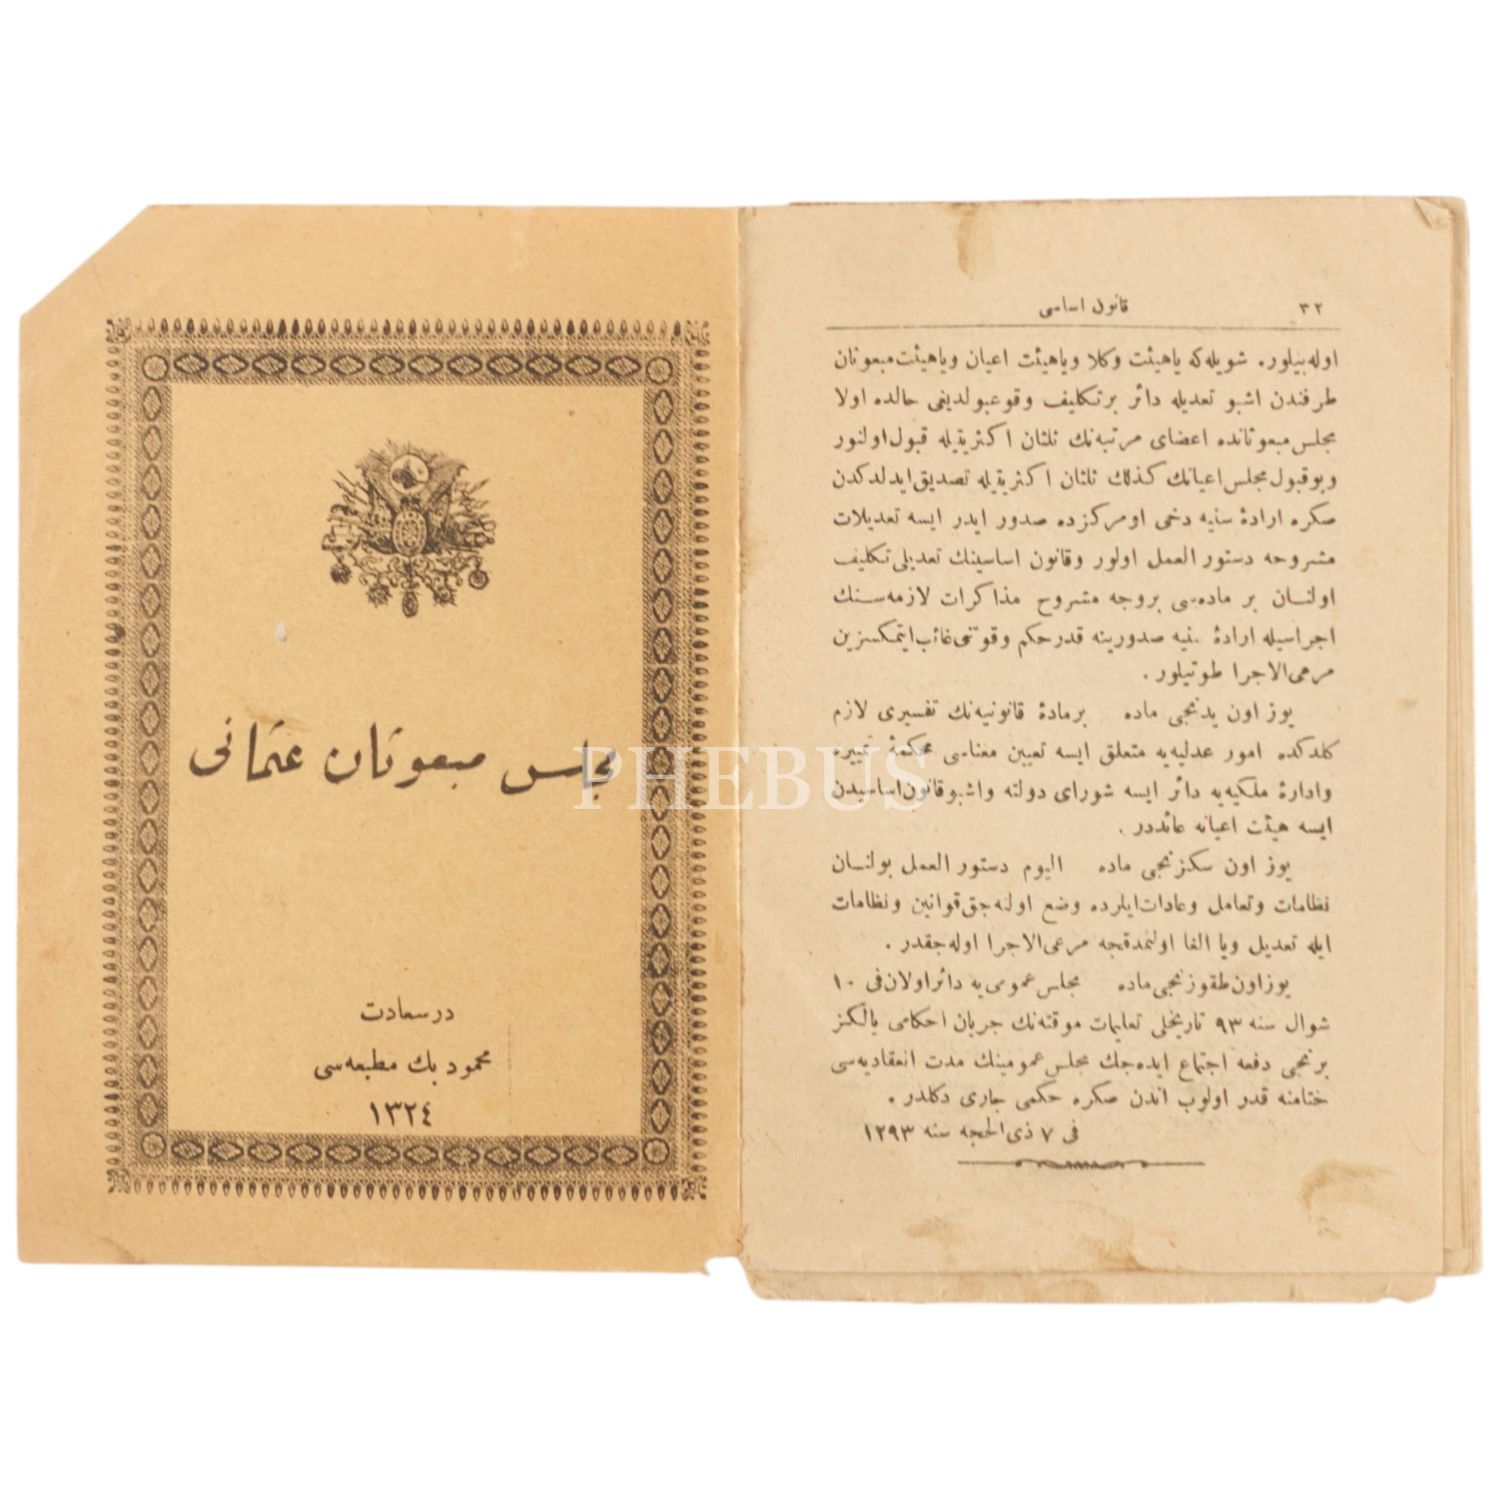 ٣٢
قانون اساسی
اوله‌بیلور. شویله‌که یاهیئت وکلا ویاهیئت اعیان ویاهیئت مبعوثان
طرفندن اشبو تعدیله دائر برتکلیف وقوعبولدیغی حالده اولا
مجلس مبعوثانده اعضای مرتبه‌نك ثلثان اکثریتیله قبول اولنور
وبوقبول مجلس اعیانك کذلك ثلثان اکثریتیله تصدیق ایدلدکدن
صکره ارادهٔ سنیه دخی اومرکزده صدور ایدر ایسه تعدیلات
مشروحه دستور العمل اولور وقانون اساسینك تعدیلی تکلیف
اولنـان بر ماده‌سی بروجه مشروح مذاکرات لازمه‌سـنك
اجراسیله ارادهٔ سنیه صدورینه قدرحکم وقوتنی غائب ایتمکسزین
مرعی‌الاجرا طوتیلور.
یوز اون یدنجی ماده برمادهٔ قانونیه‌نك تفسیری لازم
کلدکده امور عدلیه‌یه متعلق ایسه تعیین معناسی محکمهٔ تمییزه
وادارهٔ ملکیه‌یه دائر ایسه شورای دولته واشبوقانون‌اساسیدن
ایسه هیئت اعیانه عائددر.
یوز اون سکزنجی ماده الیوم دستور العمل بولنـان
نظامات وتعامل وعادات‌ایلرده وضع اولنه‌جق‌قوانین ونظامات
ایله تعدیل ویا الغا اولنمدقجه مرعی‌الاجرا اوله‌جقدر.
یوزاون‌طقوزنجی‌ماده مجلس‌عمومی‌یه دائراولان‌فی ١٠
شوال سنه ٩٣ تاریخلی تعلیمات موقته‌نك جریان احکامی یالکز
برنجی دفعه اجتماع ایده‌جك مجلس‌عمومینك مدت انعقادیه‌سی
ختامنه قدر اولوب اندن صکره حکمی جاری دکلدر.
فی ٧ ذی‌الحجه سنه ١٢٩٣
مجلس مبعوثان عثمانی
درسعادت
محمود بك مطبعه‌سی
١٣٢٤
PHEBUS